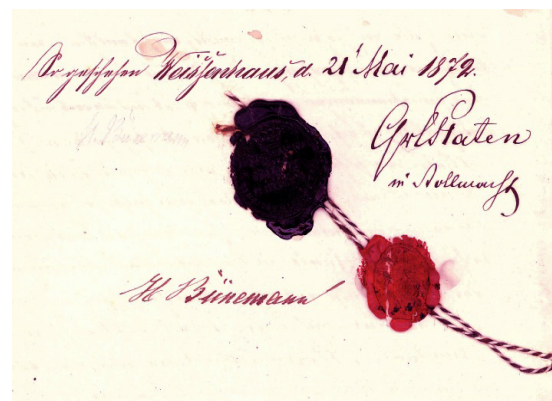 So geschehen Weissenhaus, d. 21 Mai 1872.
GrlPlaten
in Vollmacht
H Bünemann